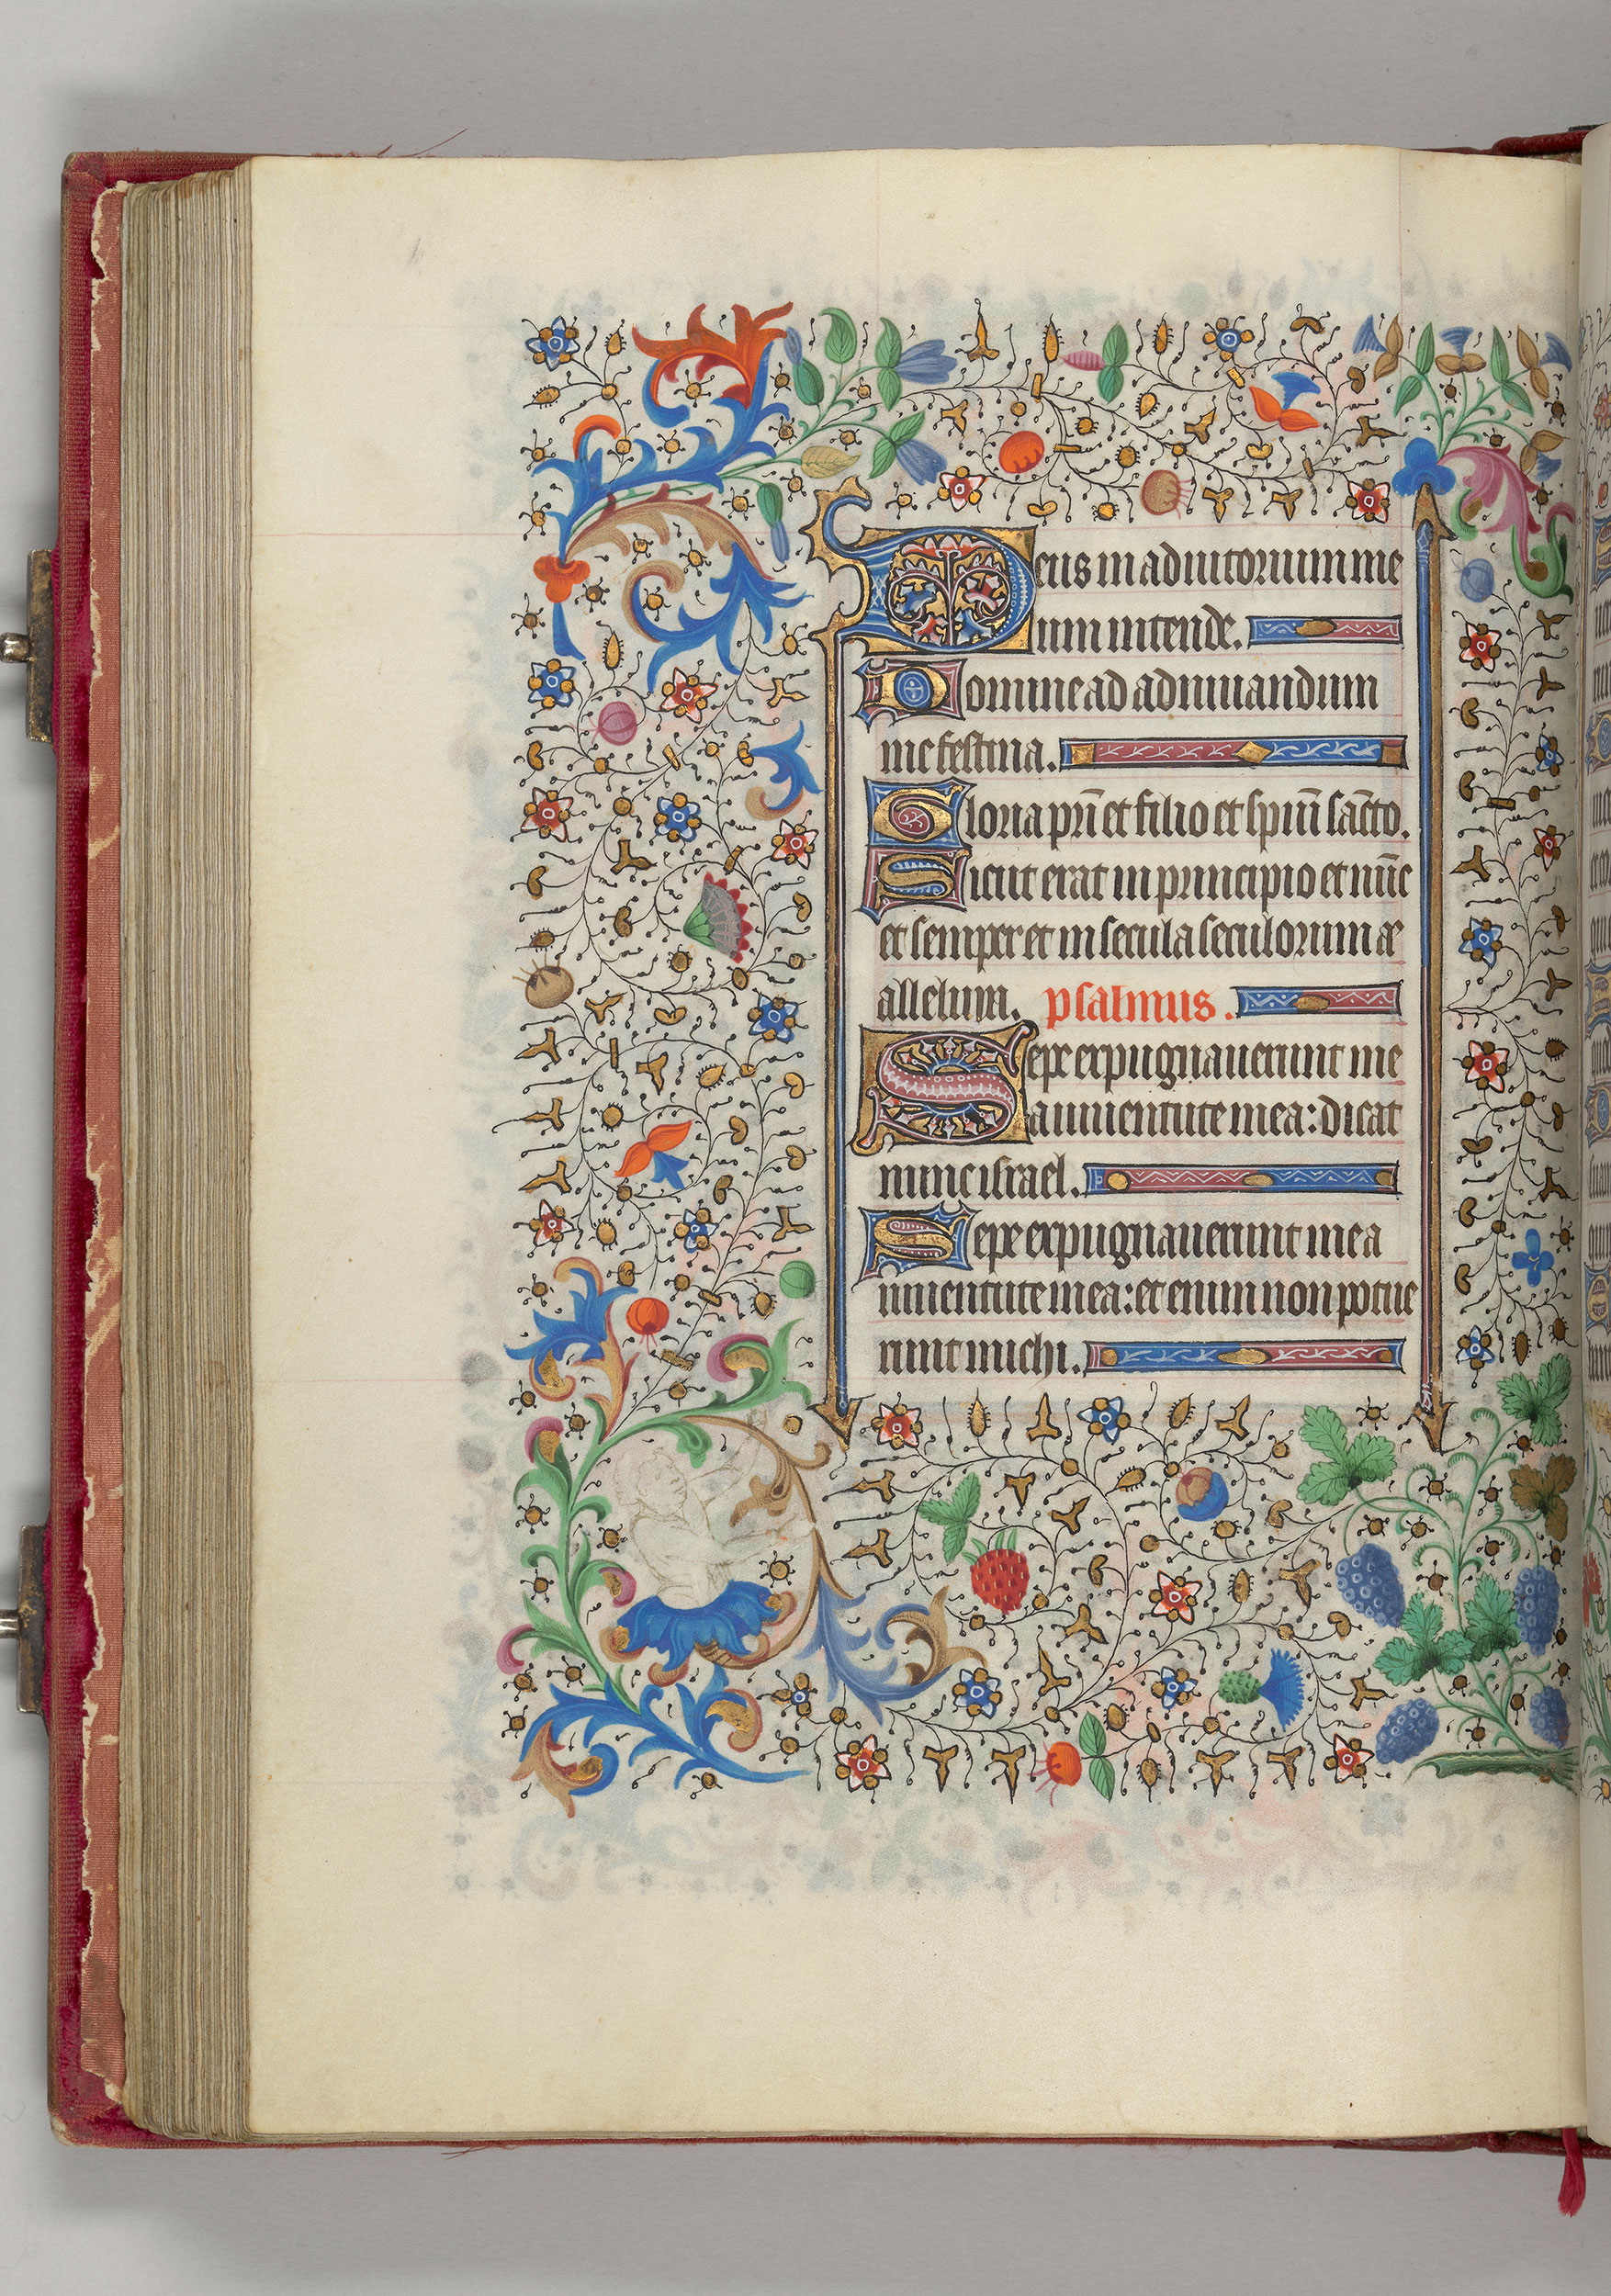 Deus in adiutorium me
um intende.
Domine ad adiuuandum
me festina.
Gloria pr̄i et filio et sp̄ui sācto.
Sicut erat in principio et nūc
et semper et in secula seculorum ae
alleluia. psalmus.
Sepe expugnauerunt me
a iuuentute mea: dicat
nunc israel.
Sepe expugnauerunt me a
iuuentute mea: et enim non potue
runt michi.